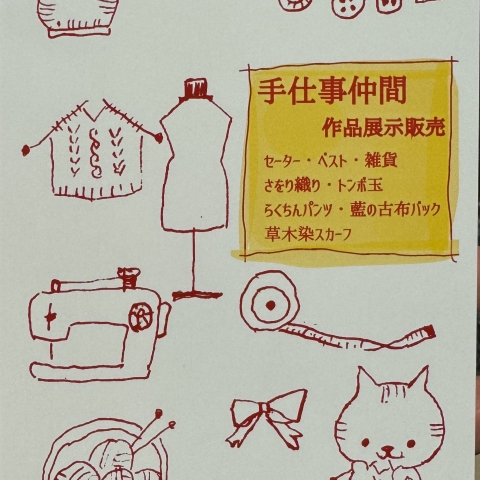 手仕事仲間
作品展示販売
セーター・ベスト・雑貨
さをり織り・トンボ玉
らくちんパンツ・藍の古布バック
草木染スカーフ